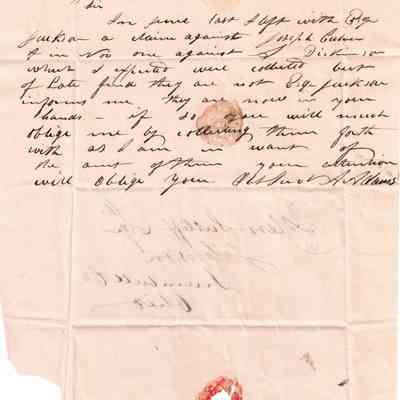 Sir
In June last I left with Esqr
Jackson a claim against Joseph
& in Nov one against S Dickinson
which I expected were collected but
of Late find they are not Esqr Jackson
informs me they are now in your
hands - if so you will much
oblige me by collecting them forth
with as I am in want of
the amt of them your attention
will oblige your Obt Servt A. Adams
Esqr
Johnson
Trumbull Co
Ohio